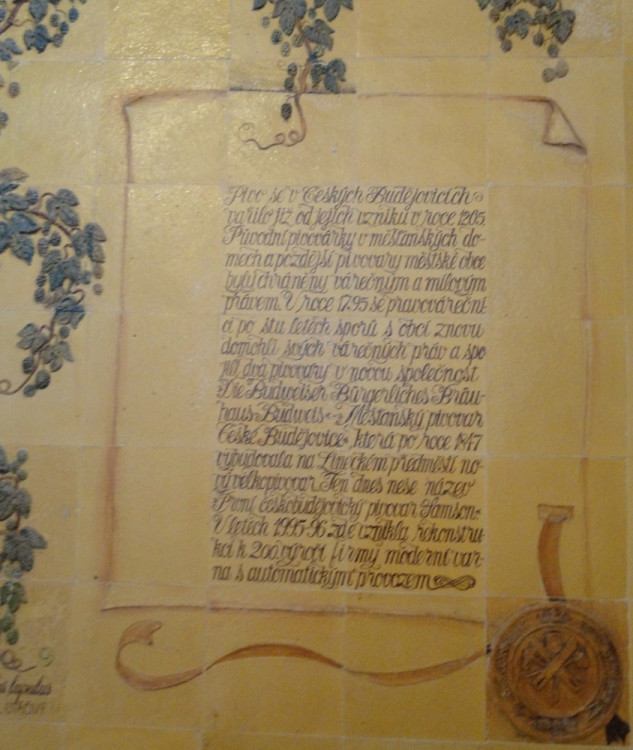 Pivo se v Českých Budějovicích
vařilo již od jejich vzniku v roce 1265.
Původní pivovárky v měšťanských do-
mech a pozdější pivovary městské obce
byly chráněny várečným a mílovým
právem. V roce 1795 se pravováreční-
ci po stu letech sporů s obcí znovu
domohli svých várečných práv a spo-
jili dva pivovary v novou společnost
„Die Budweiser Bürgerliches Bräu-
haus-Budweis“-„Měšťanský pivovar
České Budějovice“, která po roce 1847
vybudovala na Lineckém předměstí no-
vý velkopivovar. Ten dnes nese název
„První českobudějovický pivovar Samson“.
V letech 1995-96 zde vznikla rekonstru-
kcí k 200.výročí firmy moderní var-
na s automatickým provozem